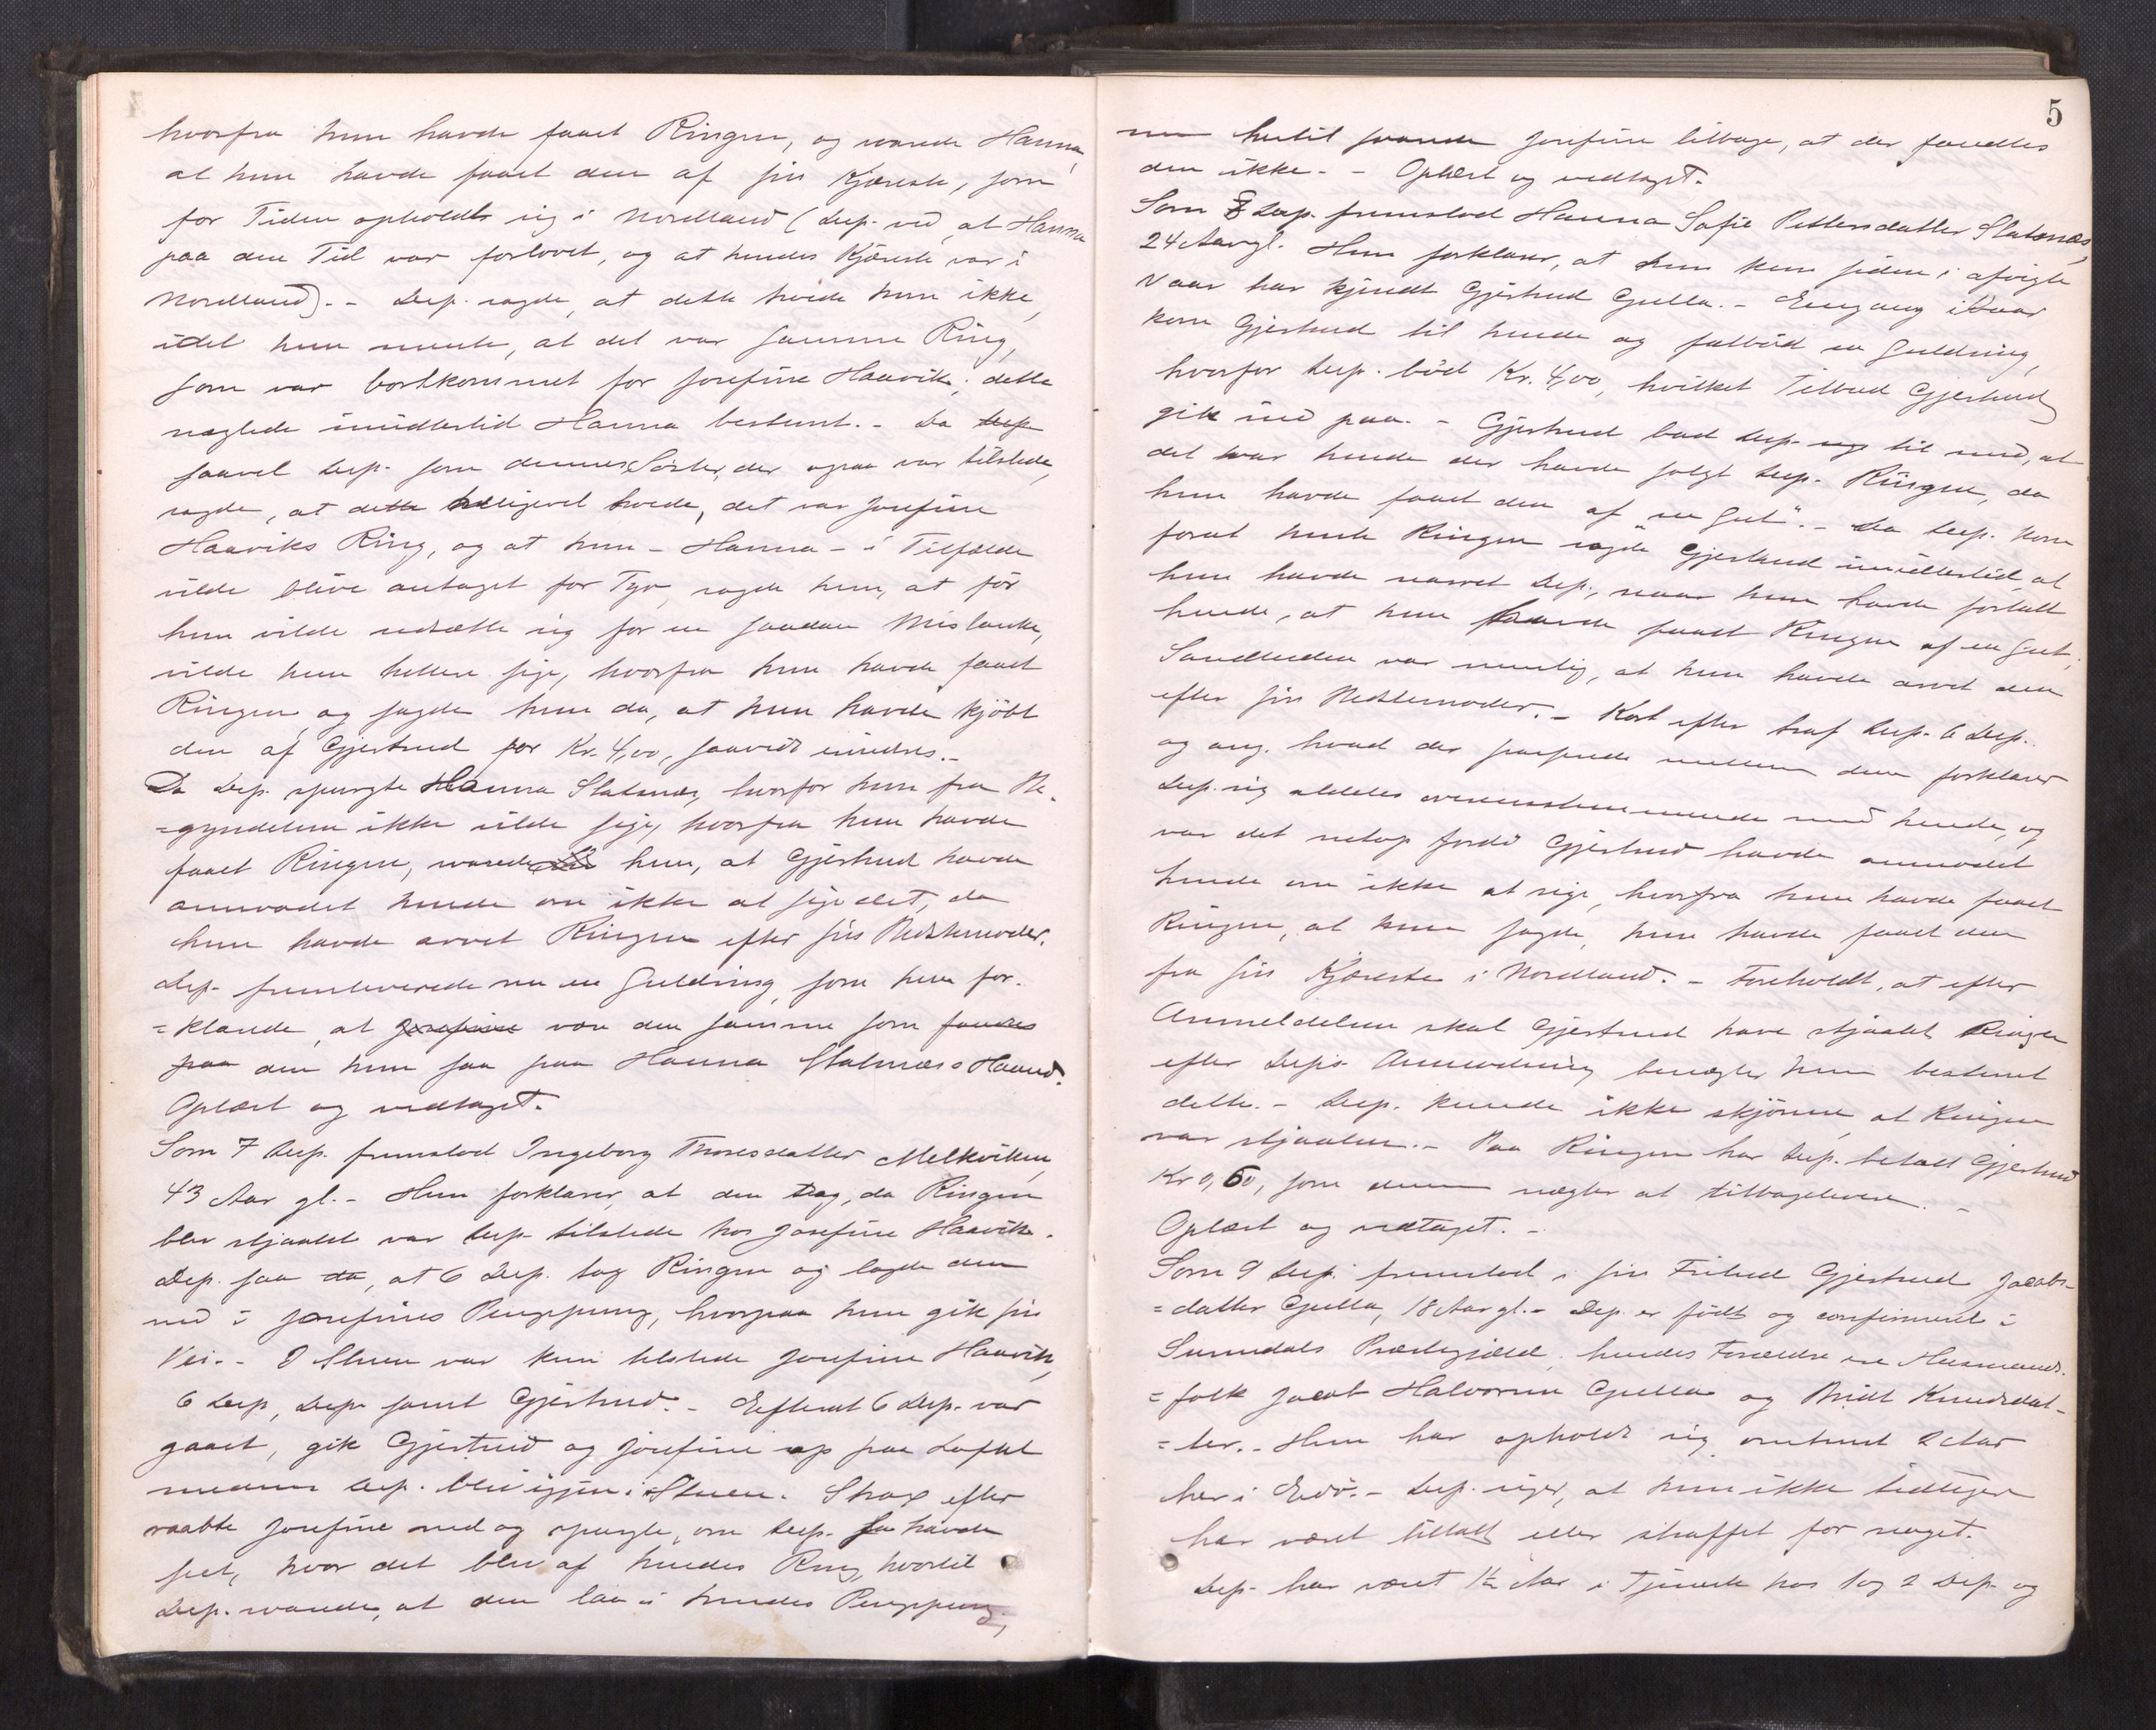 hvorfra hun havde faaet Ringen, og svarede Hanna,
at hun havde faaet den af sin Kjæreste, som
for Tiden opholdt sig i Nordland (Dep. ved, at Hanna
paa den Tid var forlovet, og at hendes Kjæreste var i
Nordland). - Dep. sagde, at dette troede hun ikke,
idet hun mente, at det var samme Ring,
som var bortkommet for Josefine Haavik; dette
nægtede imidlertid Hanna bestemt. - Da Dep
saavel Dep. som dennes Söster, der ogsaa var tilstede,
sagde, at de alligevel troede, det var Josefine
Haaviks Ring, og at hun - Hanna - i Tilfælde
vilde blive antaget for Tyv, sagde hun, at för
hun vilde udsætte sig for en saadan Mistanke,
vilde hun heller sige, hvorfra hun havde faaet
Ringen, og sagde hun da, at hun havde kjöbt
den af Gjertrud for Kr. 4,00, saavidt erindres. -
Da Dep. spurgte Hanna Slatnæs, hvorfor hun fra Be-
=gyndelsen ikke vilde sige, hvorfra hun havde
faaet Ringen, svarede hun, at Gjertrud havde
anmodet hende om ikke at sige det, da
hun havde arvet Ringen efter sin Bedstemoder.
Dep. fremleverede nu en Guldring, som hun for-
=klarede, at Josefine var den samme som fandtes
paa den hun saa paa Hanna Slatnæs's Haand.
Oplæst og vedtaget.
Som 7 Dep. fremstod Ingeborg Thoresdatter Melkviken,
43 Aar gl. - Hun forklarer, at den Dag, da Ringen
blev stjaalet var Dep. tilstede hos Josefine Haavik.
Dep. saa da, at 6 Dep. tog Ringen og lagde den
ned i Josefines Pengepung, hvorpaa hun gik sin
Vei. - I Stuen var kun tilstede Josefine Haavik,
6 Dep, Dep. samt Gjertrud. - Efterat 6 Dep. var
gaaet, gik Gjertrud og Josefine op paa Loftet
medens Dep. blev igjen i Stuen. Strax efter
raabte Josefine ned og spurgte, om Dep. saa havde
seet, hvor det blev af hendes Ring, hvortil
Dep. svarede, at den laa i hendes Pengepung,
5
men hertil svarede Josefine tilbage, at der fandtes
den ikke. - Oplæst og vedtaget.
Som 8 Dep. fremstod Hanna Sofie Pettersdatter Slatnæs,
24 Aar gl. Hun forklarer, at hun kun siden i afvigte
Vaar har kjendt Gjertrud Gulla. - Engang i Vaar
kom Gjertrud til hende og falböd en Guldring,
hvorfor Dep. böd Kr. 4,00, hvilket Tilbud Gjertrud
gik ind paa. - Gjertrud bad Dep. sige til med, at
det var hende der havde solgt Dep. Ringen, da
hun havde faaet den af "en Gut". - Da Dep. kom
forat hente Ringen sagde Gjertrud imidlertid, at
hun havde narret Dep., naar hun havde fortalt
hende, at hun havde faaet Ringen af en Gut;
Sandheden var nemlig, at hun havde arvet den
efter sin Bedstemoder. - Kort efter traf Dep. 6 Dep.
og ang. hvad der passerede mellem dem forklarer
Dep. sig aldeles overensstemmende med hende, og
var det netop fordi Gjertrud havde anmodet
hende om ikke at sige, hvorfra hun havde faaet
Ringen, at hun sagde, hun havde faaet den
fra sin Kjæreste i Nordland. - Foreholdt, at efter
Anmeldelsen skal Gjertrud have stjaalet Ringen
efter Dep's Anmodning benægter hun bestemt
dette. - Dep. kunde ikke skjönne, at Ringen
var stjaalen. - Paa Ringen har Dep. betalt Gjertrud
Kr 0,60, som denne nægter at tilbagelevere. -
Oplæst og vedtaget. -
Som 9 Dep. fremstod i sin Frihed Gjertrud Jacobs-
=datter Gulla, 18 Aar gl. - Dep. er födt og confirmeret i
Surendals Præstegjæld, hendes Forældre ere Husmands-
=folk Jacob Halvorsen Gulla og Bridt Knudsdat-
=ter. - Hun har opholdt sig omtrent 2 Aar
her i Edö. - Dep. siger, at hun ikke tidligere
har været tiltalt eller straffet for noget.
Dep. har været 1½ Aar i Tjeneste hos 1 og 2 Dep. og